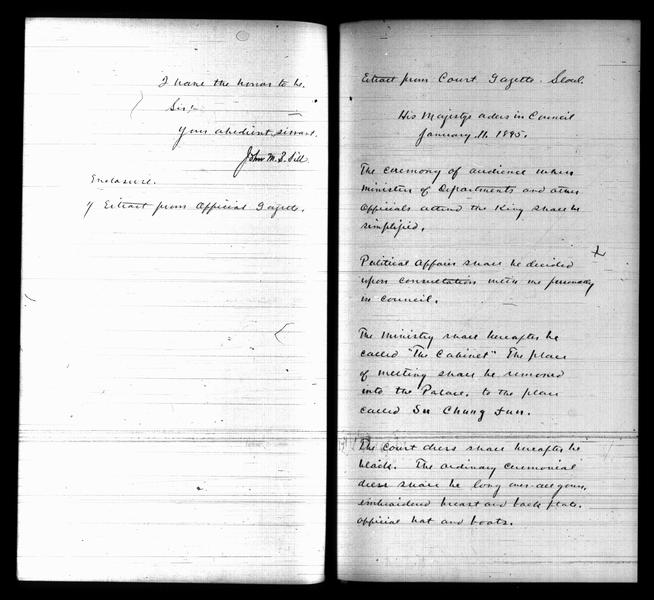 I have the honor to be,
Sir:
Your obedient servant.
John M. B. Sill
Enclosure.
Extract from Official Gazette.
Extract from Court Gazette. Seoul.
His Majesty orders in Council
January 11. 1895.
The ceremony of audience when
Ministers of Departments and other
Officials attend the King shall be
simplified.
Political Affairs shall be decided
upon consultation with me personally
in Council.
The Ministry shall hereafter be
called "The Cabinet" The place
of meeting shall be removed
into the Palace, to the place
called Su Chung
The Court dress shall hereafter be
black. The ordinary ceremonial
dress shall be long over-all gown,
embroidered breast and back plate,
official hat and boots.